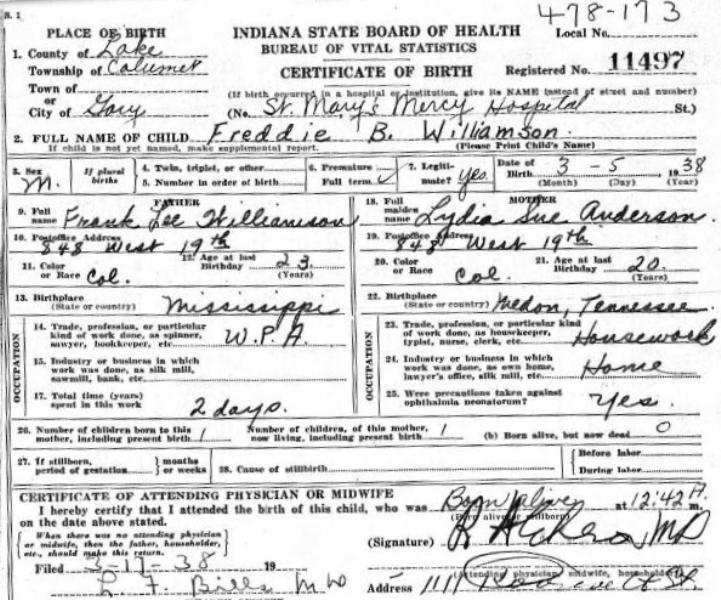 B. 1
478-173
PLACE OF BIRTH
INDIANA STATE BOARD OF HEALTH
Local No.
1. County of Lake
BUREAU OF VITAL STATISTICS
Township of Calumet
CERTIFICATE OF BIRTH
Registered No. 11497
Town of
or
(If birth occurred in a hospital or institution, give its NAME instead of street and number)
City of Gary
(No. St. Mary's Mercy Hospital St.)
2. FULL NAME OF CHILD Freddie B. Williamson
If child is not yet named, make supplemental report.
(Please Print Child's Name)
3. Sex M.
If plural births
4. Twin, triplet, or other
5. Number in order of birth
6. Premature
Full term ✓
7. Legitimate? Yes.
Date of Birth 3 - 5 1938
(Month) (Day) (Year)
FATHER
9. Full name Frank Lee Williamson
10. Postoffice Address
848 West 19th
11. Color or Race Col.
12. Age at last Birthday 23 (Years)
13. Birthplace (State or country) Mississippi
OCCUPATION
14. Trade, profession, or particular kind of work done, as spinner, sawyer, bookkeeper, etc. W.P.A.
15. Industry or business in which work was done, as silk mill, sawmill, bank, etc.
17. Total time (years) spent in this work 2 days.
MOTHER
18. Full maiden name Lydia Sue Anderson
19. Postoffice Address
848 West 19th
20. Color or Race Col.
21. Age at last Birthday 20. (Years)
22. Birthplace (State or country) Medon, Tennessee
OCCUPATION
23. Trade, profession, or particular kind of work done, as housekeeper, typist, nurse, clerk, etc. Housework
24. Industry or business in which work was done, as own home, lawyer's office, silk mill, etc. Home
25. Were precautions taken against ophthalmia neonatorum? Yes.
26. Number of children born to this mother, including present birth 1
Number of children, of this mother, now living, including present birth 1
(b) Born alive, but now dead 0
27. If stillborn, period of gestation months or weeks
28. Cause of stillbirth
Before labor
During labor
CERTIFICATE OF ATTENDING PHYSICIAN OR MIDWIFE
I hereby certify that I attended the birth of this child, who was Born alive at 12:42 A.m.
on the date above stated.
(Born alive or stillborn)
When there was no attending physician or midwife, then the father, householder, etc., should make this return.
(Signature) MD
(Attending physician, midwife, householder)
Filed 3-17-38 19
L. F. Bills MD
Address 1111 St.